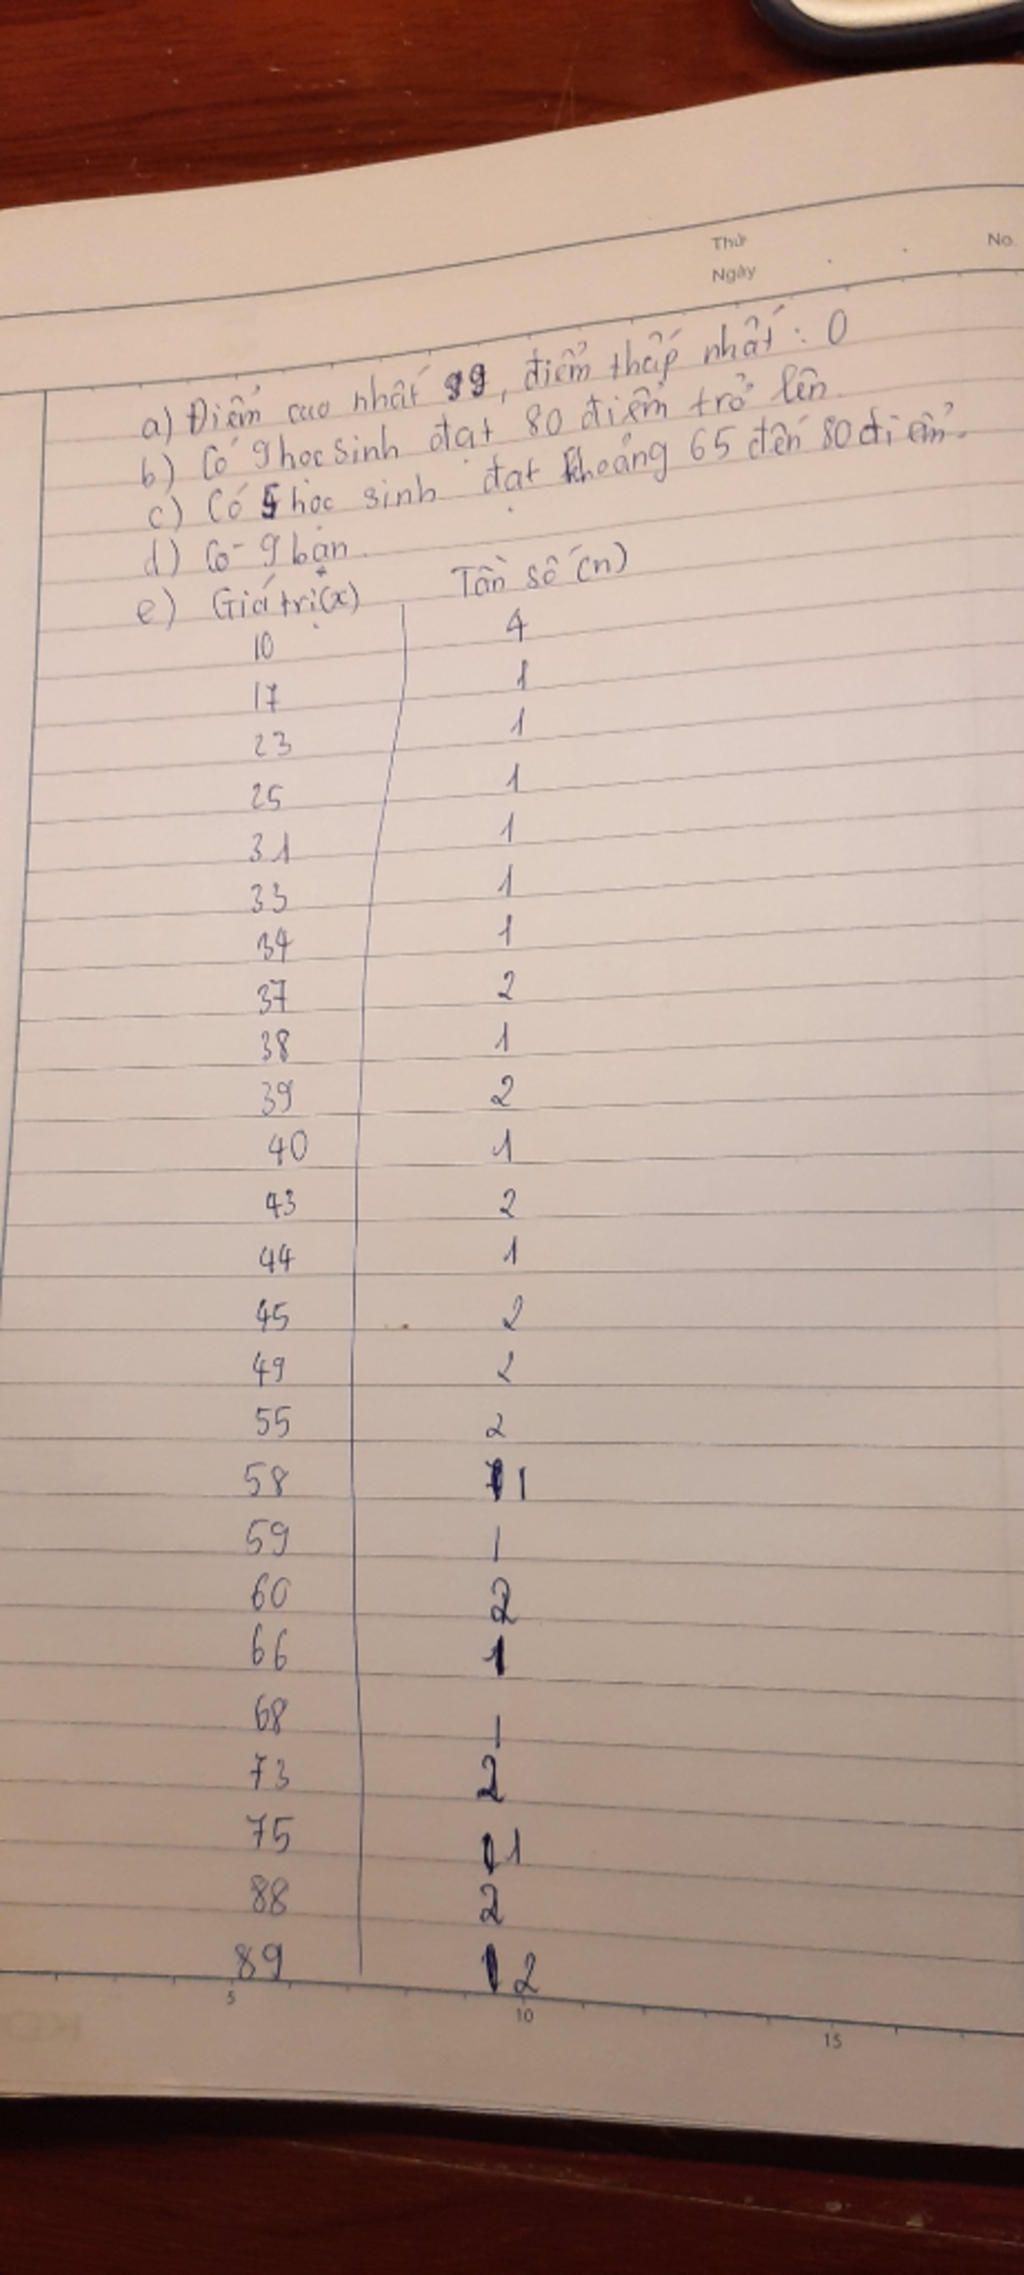 Thứ
No.
Ngày
a) Điểm cao nhất 99, điểm thấp nhất: 0
b) Có 9 học sinh đạt 80 điểm trở lên.
c) Có 5 học sinh đạt khoảng 65 đến 80 điểm.
d) Có 9 bạn.
e) Giá trị (x) Tần số (n)
10 4
17 1
23 1
25 1
31 1
33 1
34 1
37 2
38 1
39 2
40 1
43 2
44 1
45 2
49 2
55 2
58 1
59 1
60 2
66 1
68 1
73 2
75 1
88 2
89 2
5 10 15